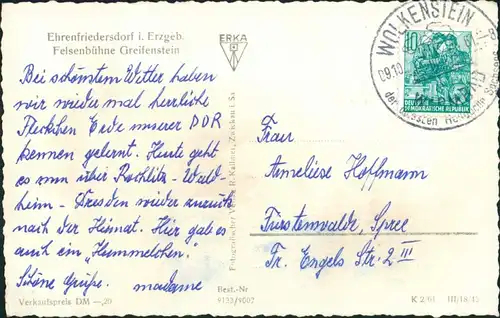 Ehrenfriedersdorf i. Erzgeb.
Felsenbühne Greifenstein
ERKA
Bei schönstem Wetter haben
wir wieder mal herrliche
Fleckchen Erde unserer DDR
kennen gelernt. Heute geht
es nun über Rochlitz - Wald-
heim - Dresden wieder zurück
nach der Heimat. Hier gab es
auch ein "
Schöne Grüße.
Verkaufspreis DM —,20
Best.-Nr
9133/9002
Zwickau i. Sa
WOLKENSTEIN
09.10
10
DEUTSCHE
DEMOKRATISCHE REPUBLIK
Frau
Anneliese Hoffmann
Fürstenwalde, Spree
Fr. Engels Str. 2 III
K 2/61 III/18/45